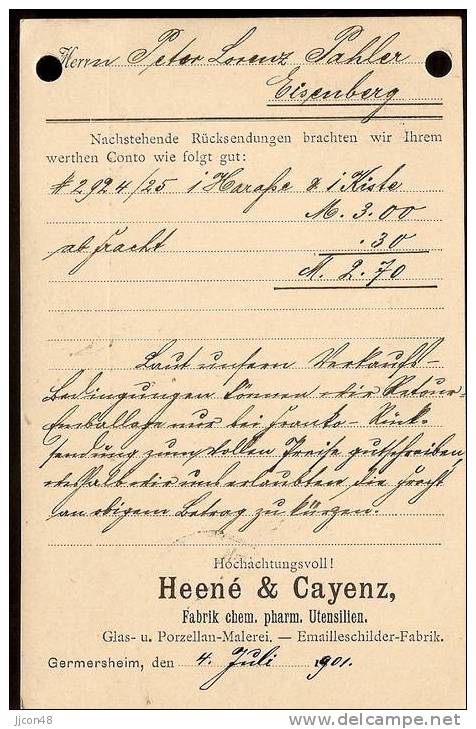 Herrn Peter Lorenz Pahler
Eisenberg
Nachstehende Rücksendungen brachten wir Ihrem
werthen Conto wie folgt gut:
# 2924/25 1 Harasse & 1 Kiste
M. 3.00
ab Fracht .30
M. 2.70
Laut unsern Verkaufs-
bedingungen können wir Retour-
Emballage nur bei Franko-Rück-
sendung zum vollen Preise gutschreiben,
weshalb wir uns erlaubten die Fracht
an obigem Betrag zu kürzen.
Hochachtungsvoll!
Heené & Cayenz,
Fabrik chem. pharm. Utensilien.
Glas- u. Porzellan-Malerei. — Emailleschilder-Fabrik.
Germersheim, den 4. Juli 1901.
jjcon48
delcampe.net